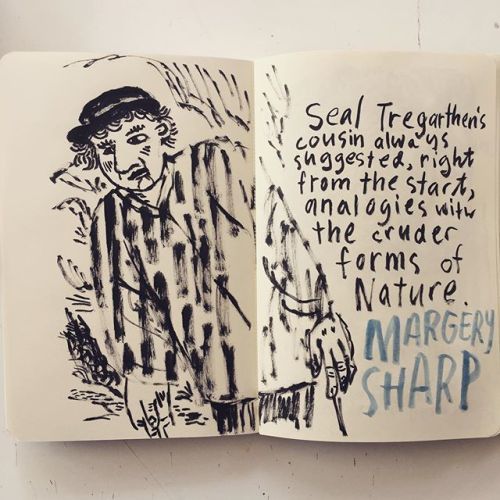 Seal Tregarthen's
cousin always
suggested, right
from the start,
analogies with
the cruder
forms of
Nature.
MARGERY
SHARP